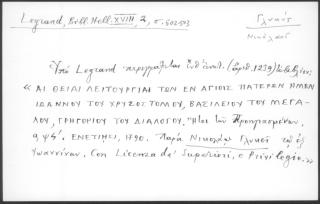 Legrand, Bibl. Hell. XVIII, 2, σ. 502-503
Γλυκύς
Νικόλαος
Ὑπό Legrand περιγράφεται ὑπ' ἀριθ. (ἀριθ. 1239) τό βιβλίον:
« ΑΙ ΘΕΙΑΙ ΛΕΙΤΟΥΡΓΙΑΙ ΤΩΝ ΕΝ ΑΓΙΟΙΣ ΠΑΤΕΡΩΝ ΗΜΩΝ
ΙΩΑΝΝΟΥ ΤΟΥ ΧΡΥΣΟΣΤΟΜΟΥ, ΒΑΣΙΛΕΙΟΥ ΤΟΥ ΜΕΓΑ-
ΛΟΥ, ΓΡΗΓΟΡΙΟΥ ΤΟΥ ΔΙΑΛΟΓΟΥ. Ἤτοι τῶν Προηγιασμένων.
αψϟ'. ΕΝΕΤΙΗΣΙ, 1790. Παρά Νικολάῳ Γλυκεῖ τῷ ἐξ
Ἰωαννίνων. Con Licenza de' Superiori, e Privilegio. »